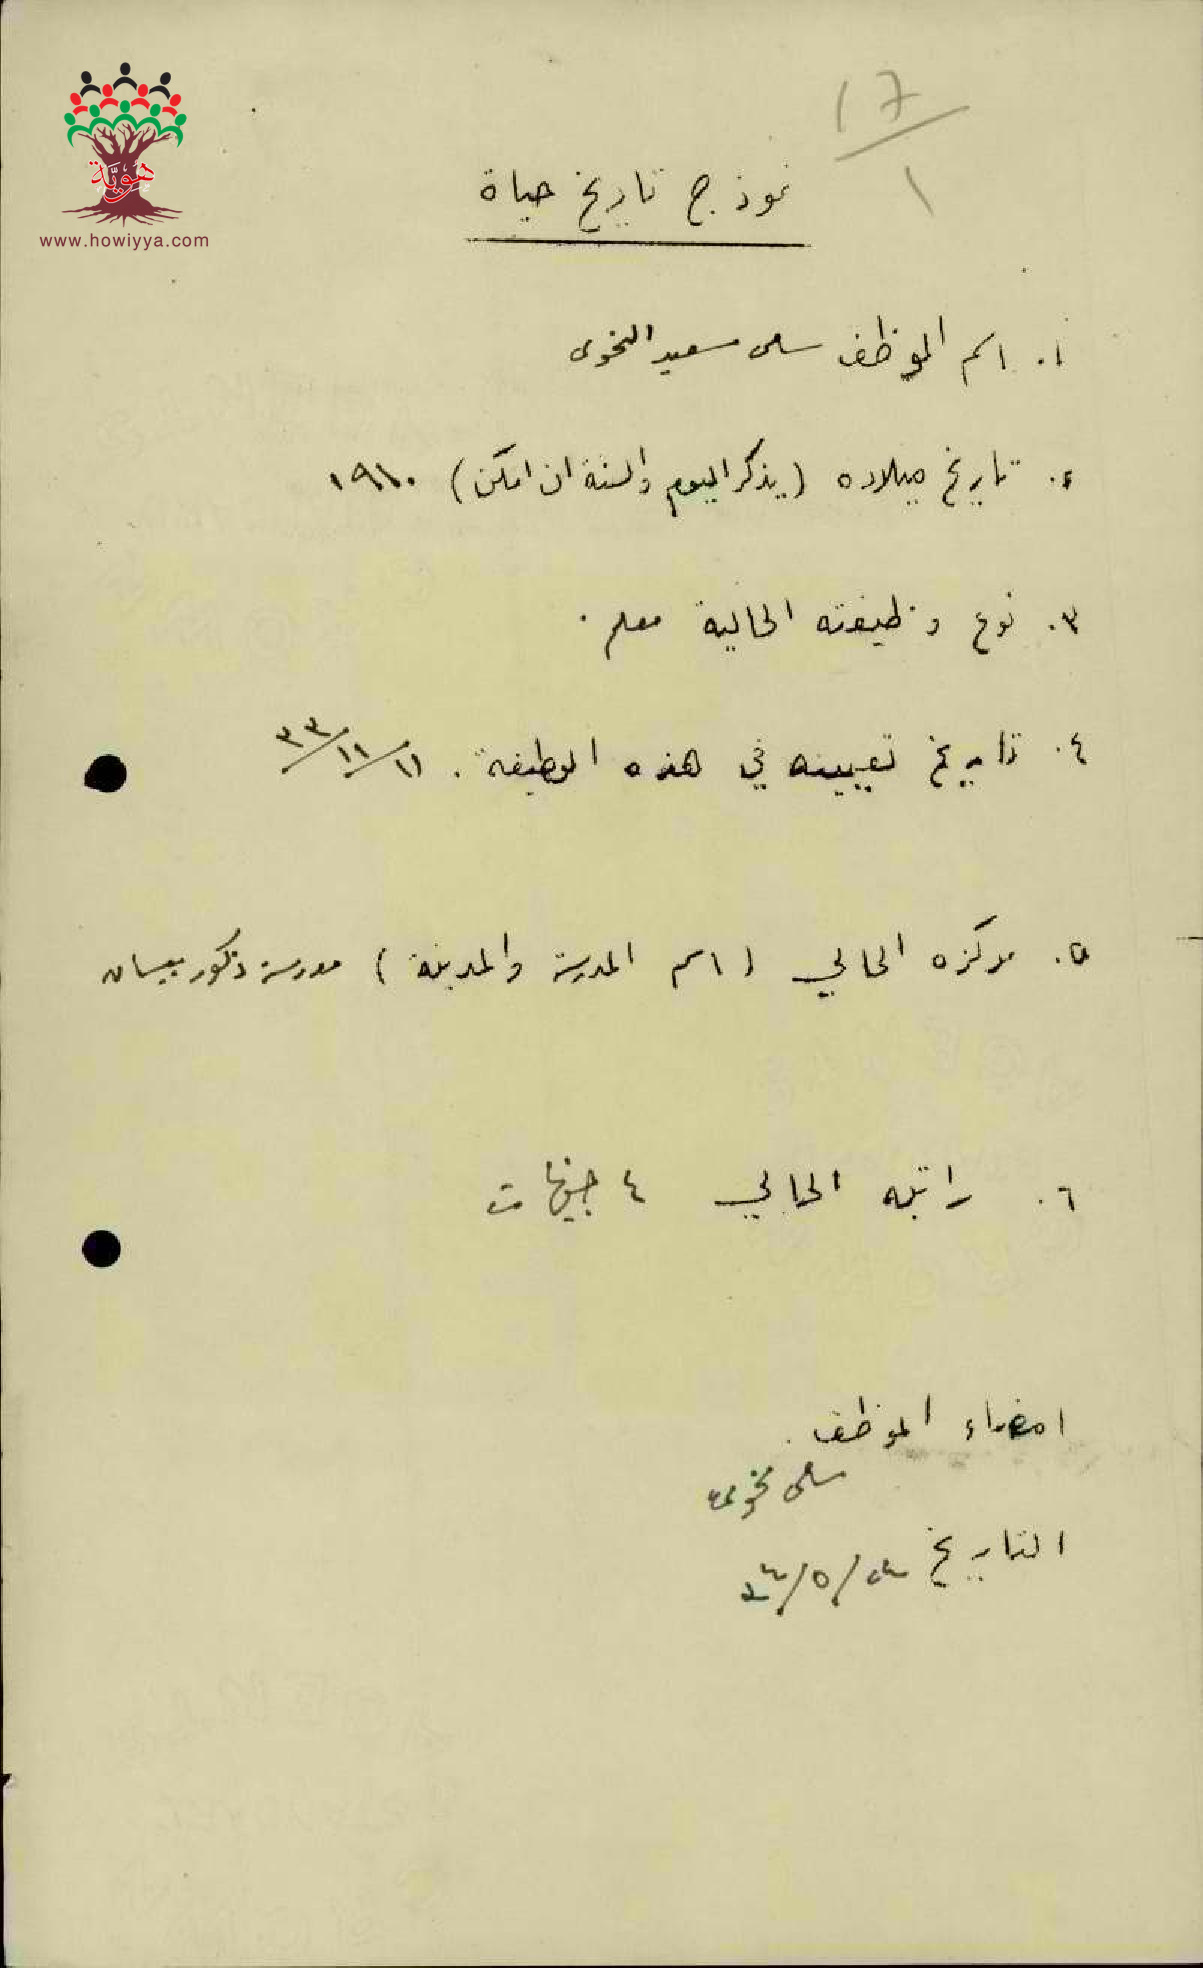 هُويَّة
www.howiyya.com
١٦
١
نموذج تاريخ حياة
١. اسم الموظف سلمى سعيد النحوى
٢. تاريخ ميلاده (يذكر اليوم والسنة ان امكن) ١٩١٠
٣. نوع وظيفته الحالية معلم.
٤. تاريخ تعيينه في هذه الوظيفة. ١١/١١/٣٣
٥. مركزه الحالي (اسم المدرسة والمدينة) مدرسة ذكور بيسان
٦. راتبه الحالي ٤ جنيهات
امضاء الموظف.
سلمى نحوى
التاريخ /٥/